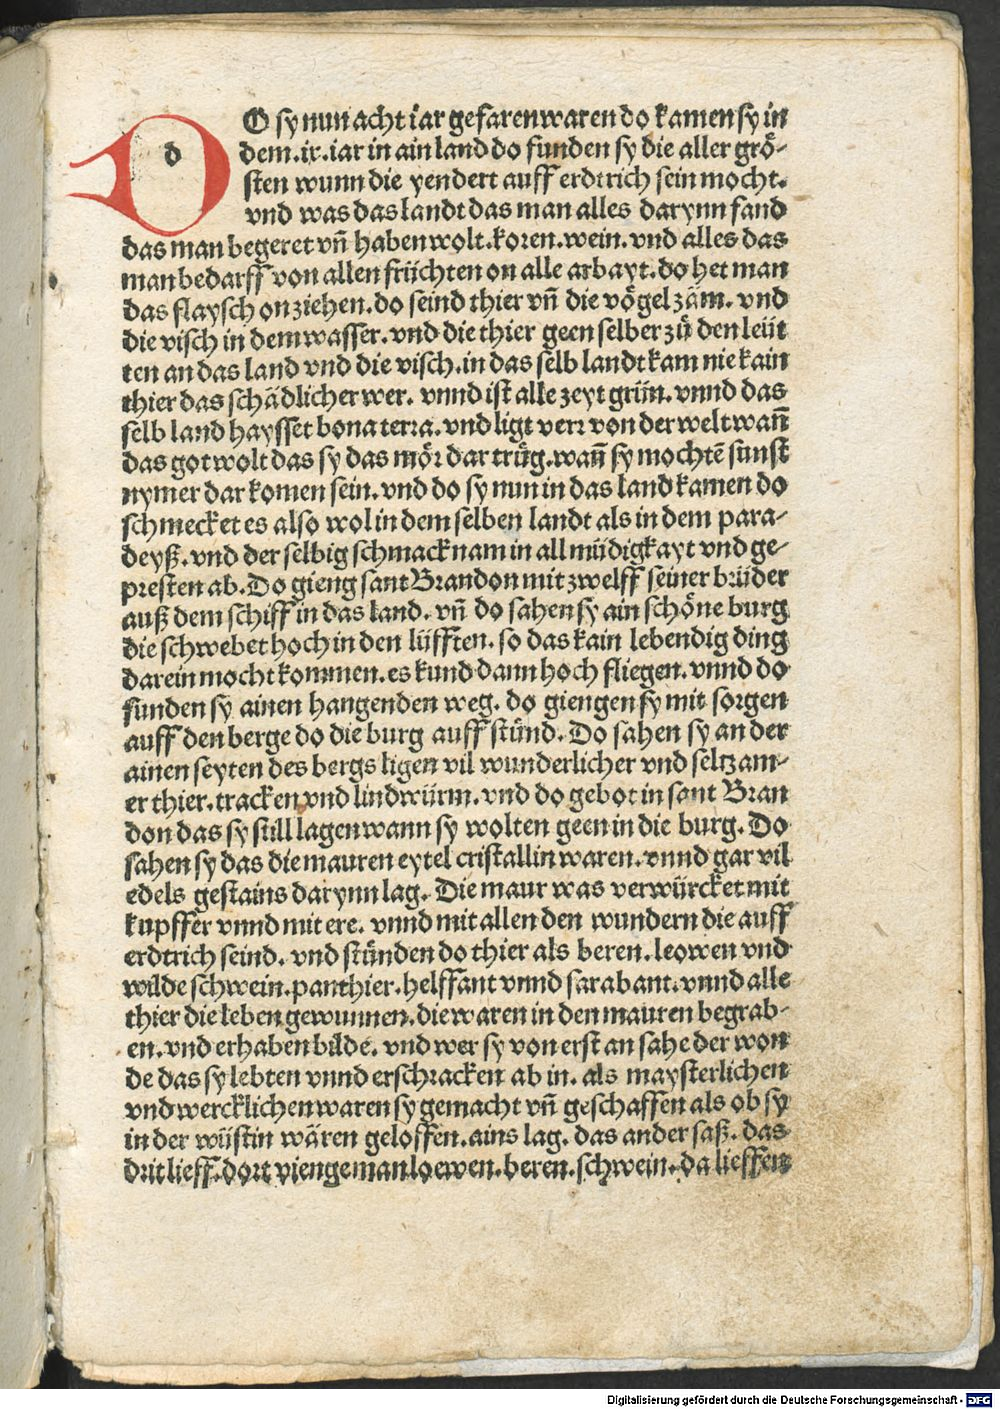 DO sy nun acht iar gefaren waren do kamen sy in
dem .ix. iar in ain land do funden sy die aller grö-
sten wunn die yendert auff erdtrich sein mocht.
vnd was das landt das man alles darynn fand
das man begeret vñ haben wolt. koren. wein. vnd alles das
man bedarff von allen früchten on alle arbayt. do het man
das flaysch on ziehen. do seind thier vñ die vögel zäm. vnd
die visch in dem wasser. vnd die thier geen selber zů den leüt
ten an das land vnd die visch. in das selb landt kam nie kain
thier das schädlicher wer. vnnd ist alle zeyt grün. vnnd das
selb land haysset bona terra. vnd ligt verr von der welt wañ
das got wolt das sy das mör dar trůg. wañ sy mochtē sunst
nymer dar komen sein. vnd do sy nun in das land kamen do
schmecket es also wol in dem selben landt als in dem para-
deyß. vnd der selbig schmack nam in all müdigkayt vnd ge-
presten ab. Do gieng sant Brandon mit zwelff seiner brüder
auß dem schiff in das land. vñ do sahen sy ain schöne burg
die schwebet hoch in den lüfften. so das kain lebendig ding
darein mocht kommen. es kund dann hoch fliegen. vnnd do
funden sy ainen hangenden weg. do giengen sy mit sorgen
auff den berge do die burg auff stůnd. Do sahen sy an der
ainen seyten des bergs ligen vil wunderlicher vnd seltzam-
er thier. tracken vnd lindwürm. vnd do gebot in sant Bran
don das sy still lagen wann sy wolten geen in die burg. Do
sahen sy das die mauren eytel cristallin waren. vnnd gar vil
edels gestains darynn lag. Die maur was verwürcket mit
kupffer vnnd mit ere. vnnd mit allen den wundern die auff
erdtrich seind. vnd stůnden do thier als beren. leowen vnd
wilde schwein. panthier. helffant vnnd sarabant. vnnd alle
thier die leben gewunnen. die waren in den mauren begrab-
en. vnd erhaben bilde. vnd wer sy von erst an sahe der won
de das sy lebten vnnd erschracken ab in. als maysterlichen
vnd wercklichen waren sy gemacht vñ geschaffen als ob sy
in der wüstin wären geloffen. ains lag. das ander saß. das
drit lieff. dort vienge man loewen. beren. schwein. da lieffen
Digitalisierung gefördert durch die Deutsche Forschungsgemeinschaft - DFG